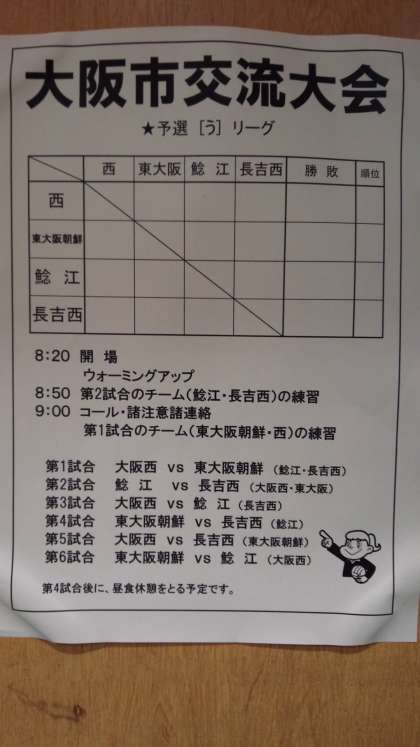 大阪市交流大会
★予選［う］リーグ
西 東大阪 鯰江 長吉西 勝敗 順位
西
東大阪朝鮮
鯰江
長吉西
8:20 開場
ウォーミングアップ
8:50 第2試合のチーム（鯰江・長吉西）の練習
9:00 コール・諸注意諸連絡
第1試合のチーム（東大阪朝鮮・西）の練習
第1試合 大阪西 vs 東大阪朝鮮（鯰江・長吉西）
第2試合 鯰江 vs 長吉西（大阪西・東大阪）
第3試合 大阪西 vs 鯰江（長吉西）
第4試合 東大阪朝鮮 vs 長吉西（鯰江）
第5試合 大阪西 vs 長吉西（東大阪朝鮮）
第6試合 東大阪朝鮮 vs 鯰江（大阪西）
第4試合後に、昼食休憩をとる予定です。